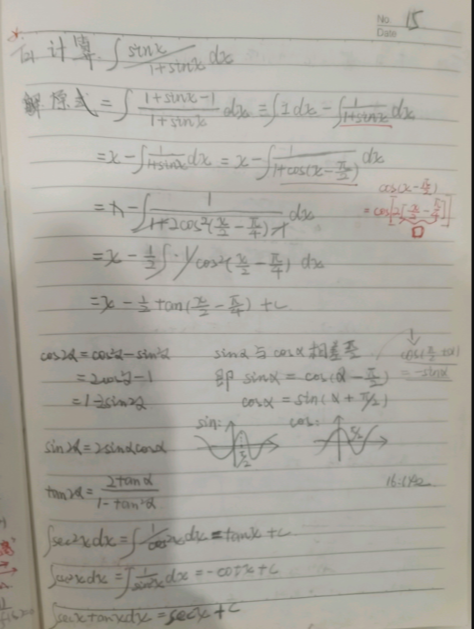 No. 15
Date
计算 ∫ sinx/(1+sinx) dx
解 原式 = ∫ (1+sinx-1)/(1+sinx) dx = ∫1dx - ∫ 1/(1+sinx) dx
= x - ∫ 1/(1+sinx) dx = x - ∫ 1/(1+cos(x-π/2)) dx
cos(x-π/2)
= cos[2[x/2-π/4]]
= x - ∫ 1/(1+2cos²(x/2-π/4)-1) dx
= x - 1/2 ∫ 1/cos²(x/2-π/4) dx
= x - 1/2 tan(x/2-π/4) + C
cos2α = cos²α - sin²α
= 2cos²α - 1
= 1-2sin²α
sinα 与 cosα 相差 π/2
即 sinα = cos(α-π/2)
cosα = sin(α+π/2)
cos(π/2+α)
= -sinα
sin:
cos:
sin2α = 2sinαcosα
tan2α = 2tanα/(1-tan²α)
∫sec²xdx = ∫ 1/cos²x dx = tanx + C
∫csc²xdx = ∫ 1/sin²x dx = -cotx + C
∫secxtanxdx = secx + C